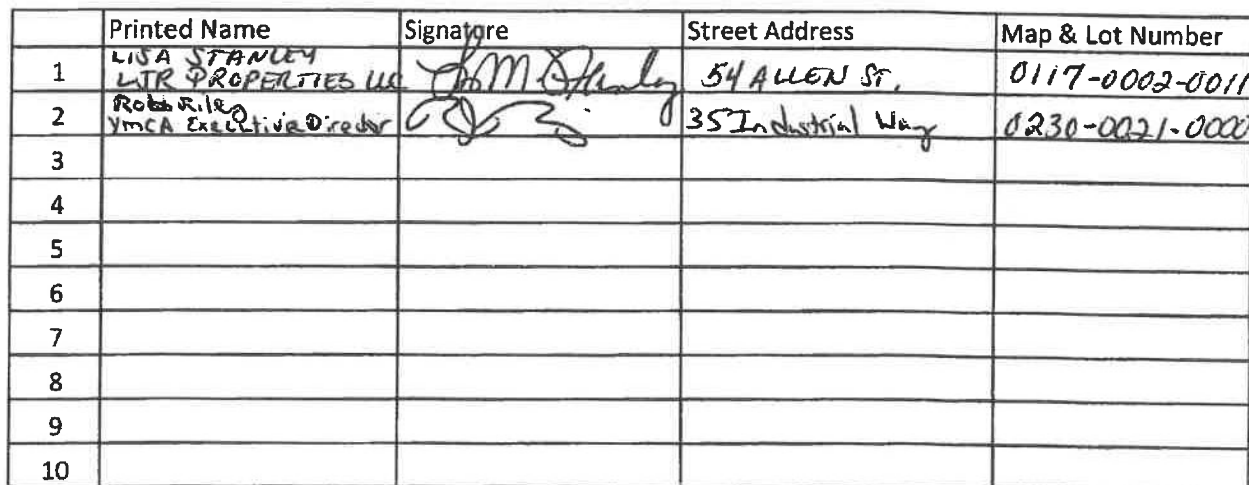 Printed Name Signature Street Address Map & Lot Number
LISA STANLEY
1 LTR PROPERTIES LLC 54 ALLEN ST. 0117-0002-0011
Rob Riley
2 YMCA Executive Director 35 Industrial Way 0230-0021-0000
3
4
5
6
7
8
9
10